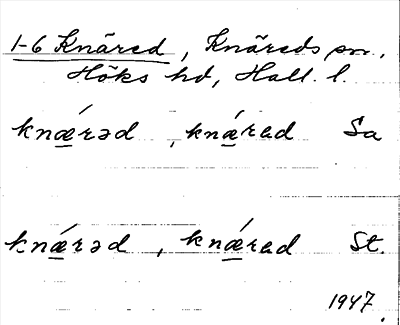 1-6 Knäred, Knäreds sn.,
Höks hd, Hall. l.
knǽrəd, knǽrad Sa
knǽrəd, knǽrad St.
1947.